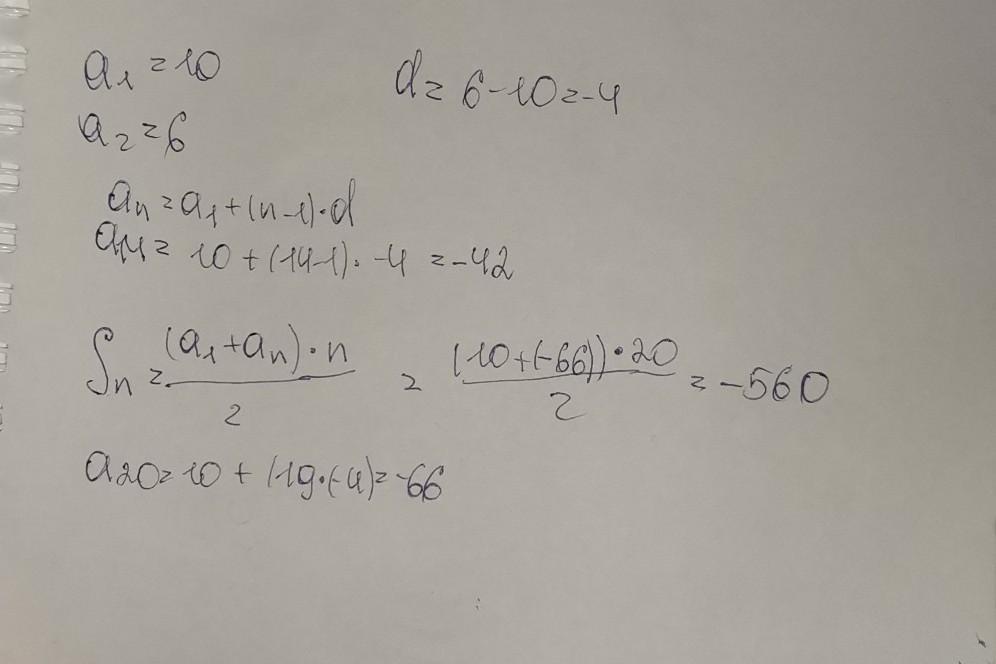 a₁ = 10 d = 6 - 10 = -4
a₂ = 6
aₙ = a₁ + (n-1)·d
a₁₄ = 10 + (14-1)· -4 = -42
Sₙ = (a₁ + aₙ)·n / 2 = (10+(-66))·20 / 2 = -560
a₂₀ = 10 + (19·(-4) = -66